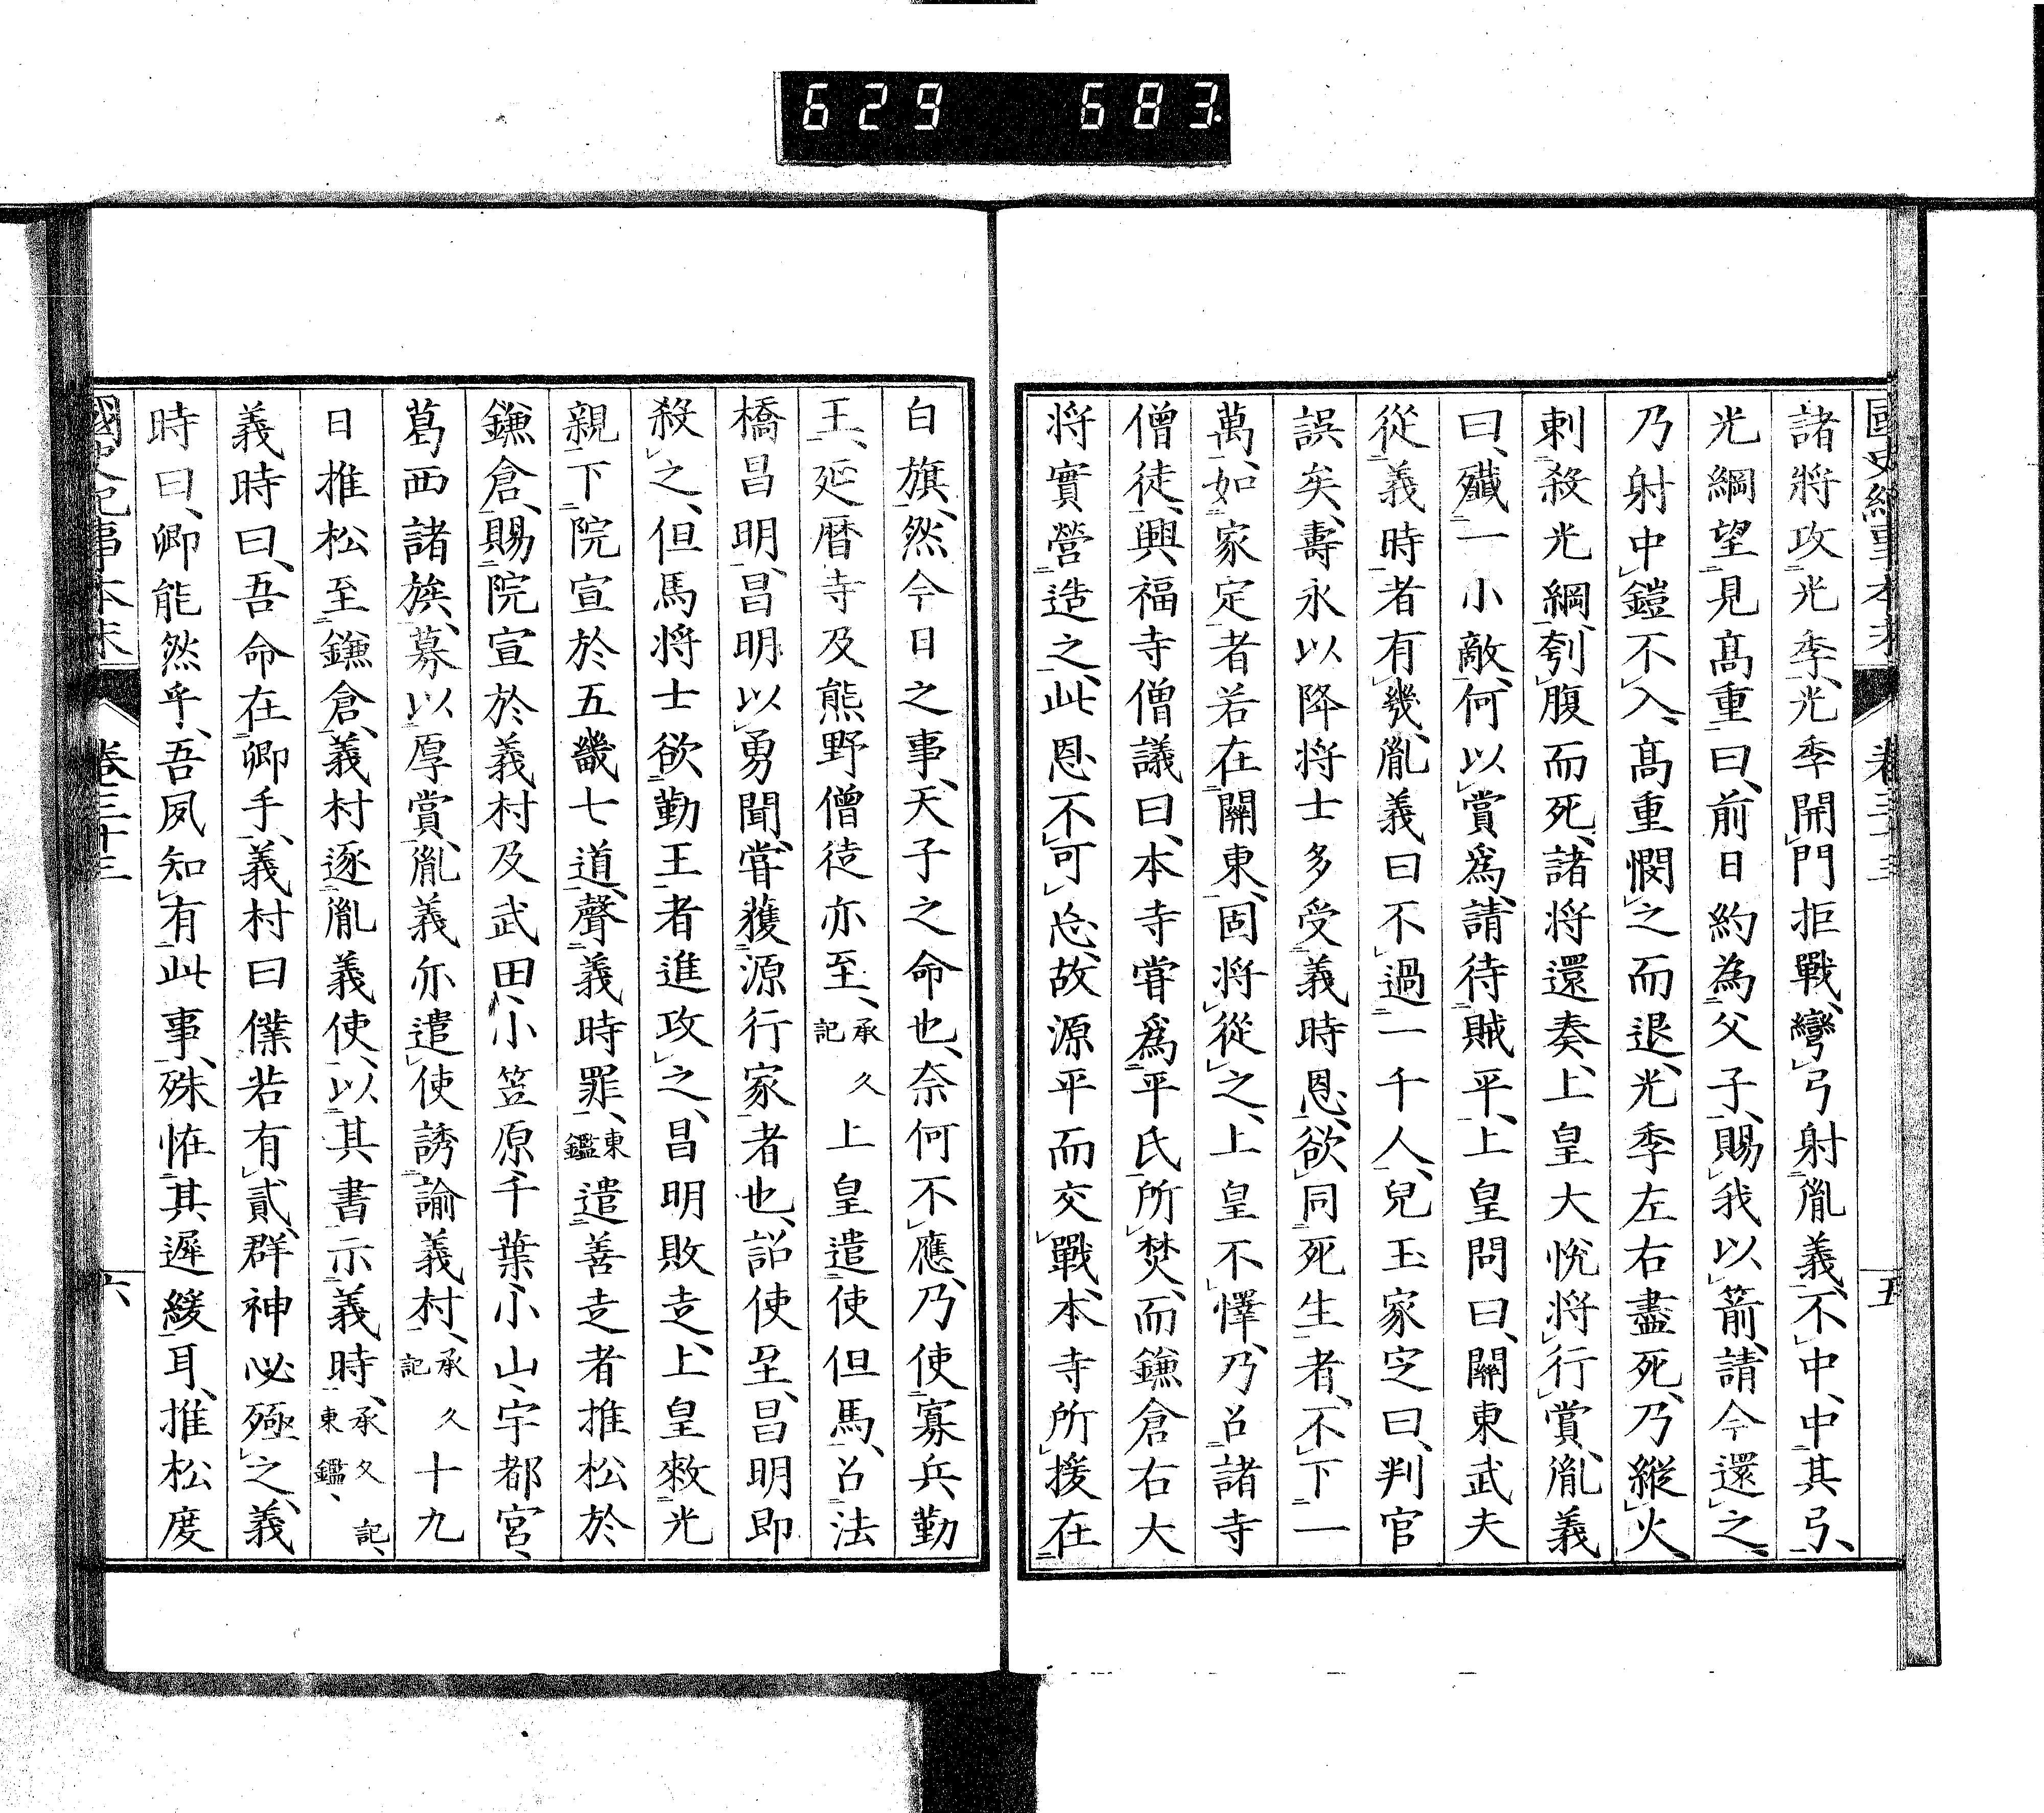 629 683
國史紀事本末 卷三十三 五
諸將攻光季、光季開門拒戰、彎弓射胤義、不中、中其弓、
光綱望見髙重曰、前日約為父子、賜我以箭、請今還之、
乃射中鎧不入、髙重憫之而退、光季左右盡死、乃縱火、
刺殺光綱、刳腹而死、諸將還奏、上皇大悅、將行賞、胤義
曰、殲一小敵、何以賞爲、請待賊平、上皇問曰、關東武夫
從義時者有幾、胤義曰不過一千人、兒玉家定曰、判官
誤矣、壽永以降將士多受義時恩、欲同死生者、不下一
萬、如家定者若在關東、固將從之、上皇不懌、乃召諸寺
僧徒、興福寺僧議曰、本寺嘗爲平氏所焚、而鎌倉右大
將實營造之、此恩不可忘、故源平而交戰、本寺所援在
白旗、然今日之事、天子之命也、奈何不應、乃使寡兵勤
王、延曆寺及熊野僧徒亦至、承久記上皇遣使但馬、召法
橋昌明、昌明以勇聞、嘗獲源行家者也、詔使至、昌明即
殺之、但馬將士欲勤王者進攻之、昌明敗走、上皇敕光
親下院宣於五畿七道、聲義時罪、東鑑遣善走者推松於
鎌倉、賜院宣於義村及武田、小笠原、千葉、小山、宇都宮、
葛西諸族、募以厚賞、胤義亦遣使誘諭義村、承久記十九
日推松至鎌倉、義村逐胤義使、以其書示義時、承久記、東鑑、
義時曰、吾命在卿手、義村曰僕若有貳、群神必殛之、義
時曰、卿能然乎、吾夙知有此事、殊怪其遲緩耳、推松度
國史紀事本末 卷三十三 六